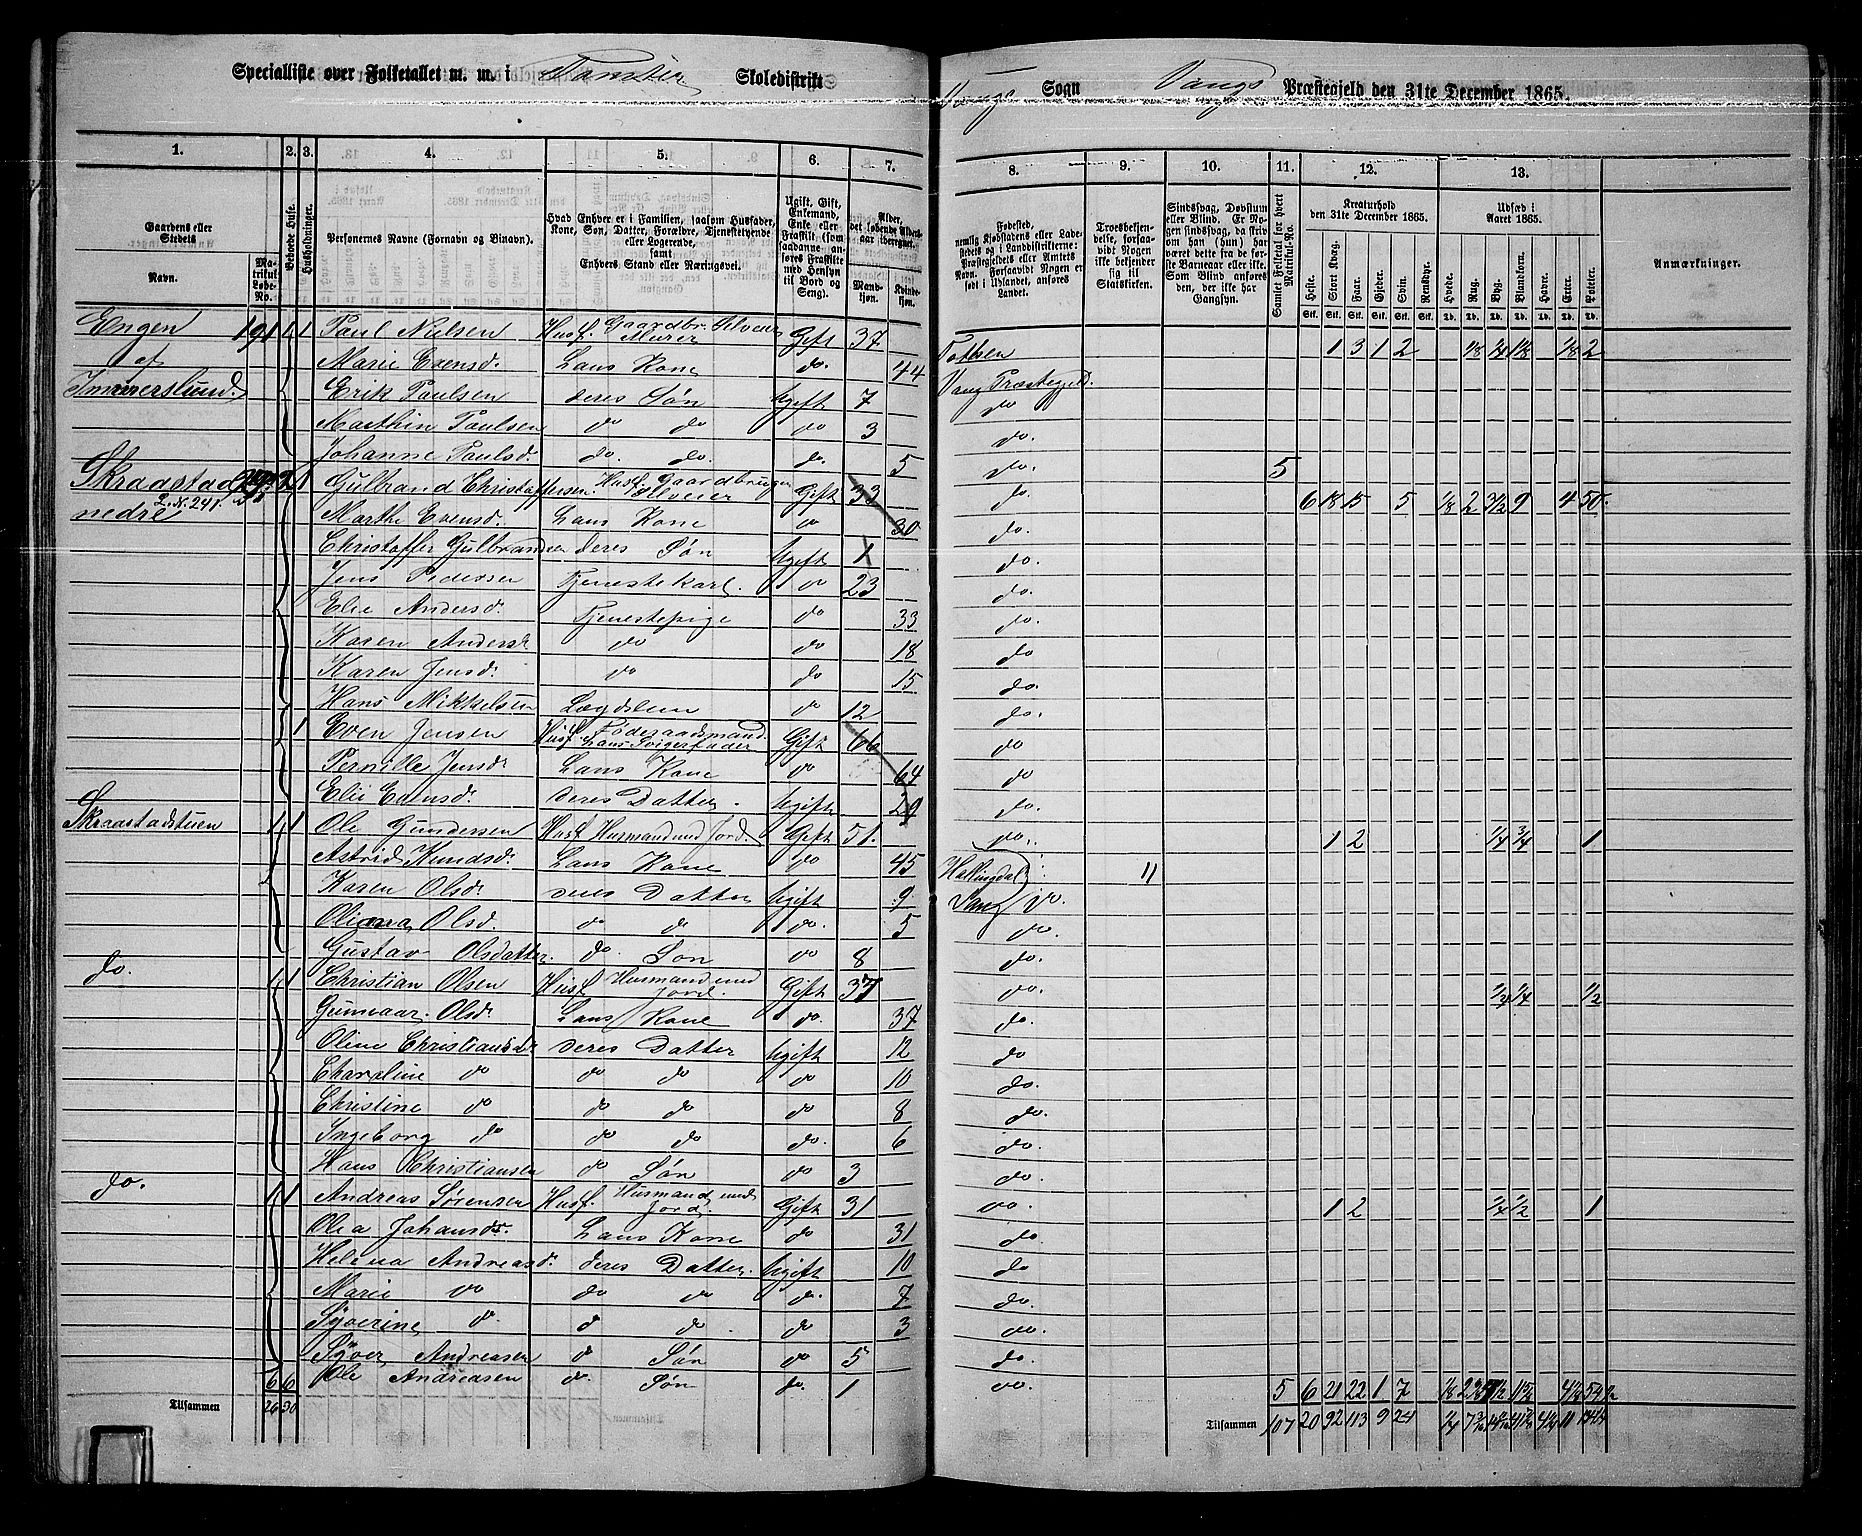 Specialliste over Folketallet m. m. i Skoledistrikt
Vangs Sogn Vangs Præstegjeld den 31te December 1865.
1. 2. 3. 4. 5. 6. 7.
8. 9. 10. 11. 12. 13.
Gaardens eller Stedets
Navn.
Matrikul Løbe-No.
Beboede Huse.
Husholdninger.
Personernes Navne (Fornavn og Binavn).
Hvad Enhver er i Familien, saasom Husfader, Kone, Søn, Datter, Forældre, Tjenestetyende eller Logerende,
samt
Enhvers Stand eller Næringsvei.
Ugift, Gift, Enkemand, Enke eller Fraskilt (som saadanne anføres Fraskilte med Hensyn til Bord og Seng).
Alder, det løbende Alders-aar iberegnet.
Mandkjøn. Kvindekjøn.
Fødested,
nemlig Kjøbstadens eller Ladestedets og i Landdistrikterne: Præstegjeldets eller Amtets Navn. Forsaavidt Nogen er født i Udlandet, anføres Landet.
Troesbekjendelse, forsaavidt Nogen ikke bekjender sig til Statskirken.
Sindssvag, Døvstum eller Blind. Er Nogen sindssvag, da skriv om han (hun) har været dette fra de første Barneaar eller ikke. Som Blind ansees den, der ikke har Gangsyn.
Samlet Folketal for hvert Matrikul-No.
Kreaturhold
den 31te December 1865.
Heste. Stort Kvæg. Faar. Gjeder. Svin. Rensdyr.
Stk. Stk. Stk. Stk. Stk. Stk.
Udsæd i
Aaret 1865.
Hvede. Rug. Byg. Blandkorn. Havre. Erter. Poteter.
Td. Td. Td. Td. Td. Td. Td.
Anmærkninger.
Engen 191 1 1 Paul Nielsen Husf. Gaardbr. Selveier Murer Gift 37 Tothen 1 3 1 2 1/8 1/4 1/8 1/8 2
af Marie Evensd. Hans Kone do. 44 Vang Præstegjeld.
Immerslund. Erik Paulsen deres Søn Ugift 7 do
Marthin Paulsen do do do 3 do.
Johanne Paulsd. do. do. do. 5 do. 5
Skraastad Gulbrand Christoffersen Husf. Gaardbruger Selveier Gift 33 do. 6 18 15 5 1/8 2 3 1/2 9 4 50
L. N. 241.
nedre Marthe Evensd. Hans Kone do 30 do.
Christoffer Gulbrandsen deres Søn Ugift 1 do.
Jens Pedersen Tjenestekarl. do 23 do.
Elie Andersd. Tjenestepige do 33 do.
Karen Andersd. do do 18 do
Karen Jensd. do do 15 do.
Hans Mikkelsen Lægdslem do 12 do.
1 Even Jensen Husf. Føderaadsmand Hans Svigerfader Gift 66 do
Pernille Jensd. Hans Kone do 64 do
Elie Evensd. deres Datter. Ugift do.
Skraastadstuen 1 1 Ole Gundersen Husf. Husmand med Jord. Gift 51. do. 1 2 1/4 3/4 1
Astrid Knudsd. Hans Kone do 45 Hallingdal "
Karen Olsd. deres Datter Ugift 9 Vang do.
Oliana Olsd. do do do. 5 do.
Gustav Olsdatter. do. Søn do 8 do.
do. 1 1 Christian Olsen Husf. Husmand med Jord. Gift 37 do. 1/4 1/4 1/2
Gunnaar Olsd. Hans Kone do. 37 do.
Oline Christiansd. deres Datter Ugift 12 do
Charoline do do do do 10 do.
Christine do do do do 8 do.
Ingeborg do do do do. 6 do.
Hans Christiansen do Søn do 3 do.
do. 1 1 Andreas Sørensen Husf. Husmand med Jord. Gift 31 do. 1 2 1/4 1/2 1
Olea Johansd. Hans Kone do 31 do.
Helena Andreasd. deres Datter. Ugift 10 do
Marie do do do do. 7 do.
Syverine do. do do. do 3 do.
Syver Andreasen do Søn do 5 do.
6 6 Ole Andreasen do. Søn do. 1 do. 5 6 21 22 1 7
Tilsammen 26 30 Tilsammen 107 20 92 113 9 24